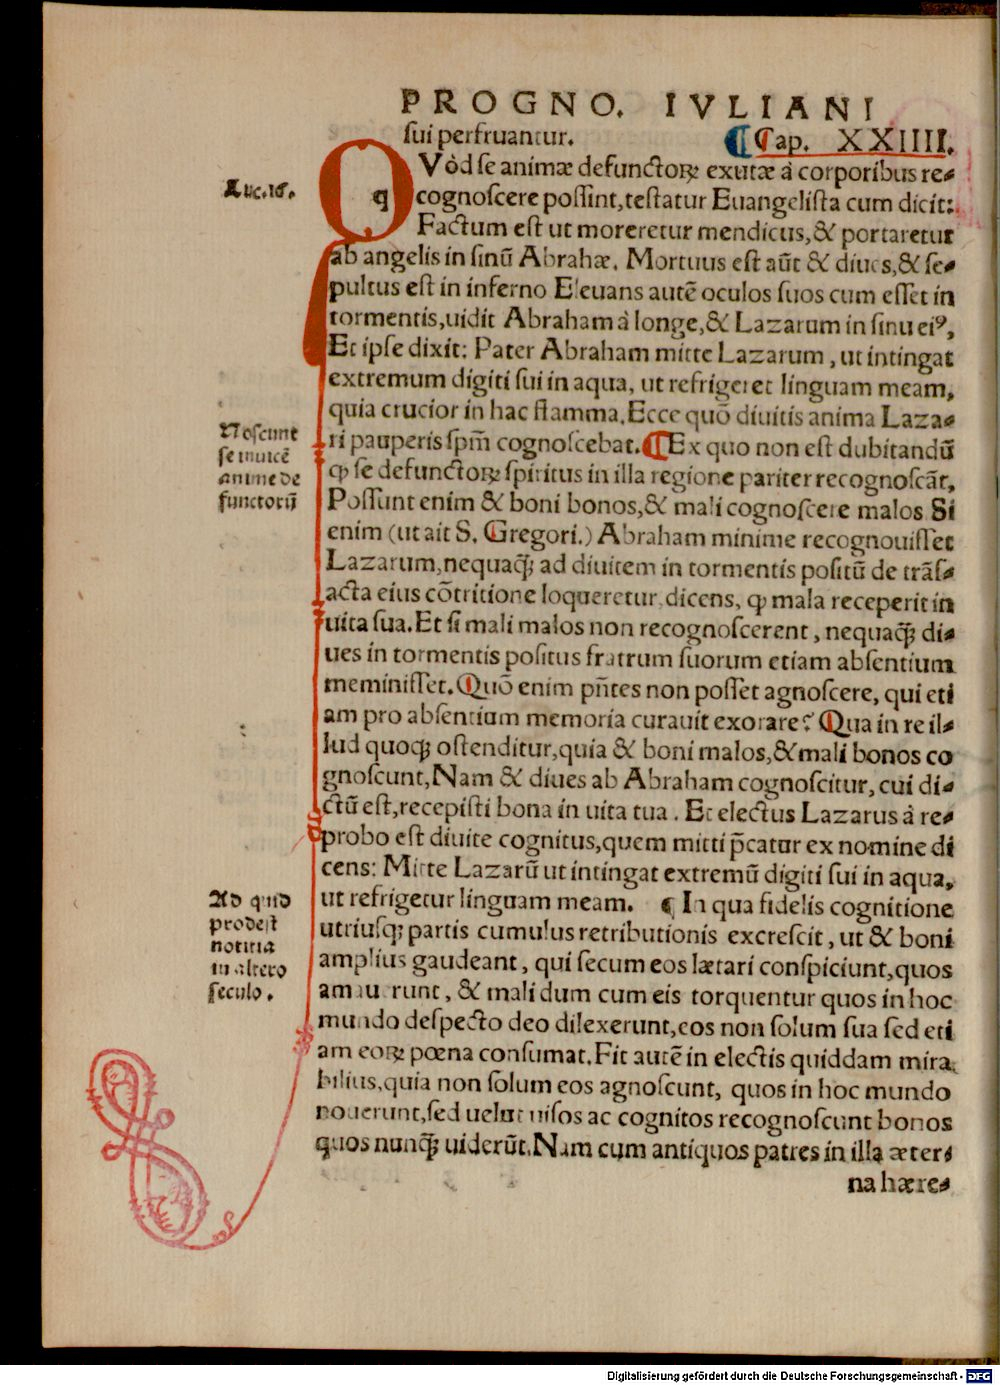 PROGNO. IVLIANI
sui perfruantur. ¶ Cap. XXIIII.
QVòd se animæ defunctoꝝ exutæ à corporibus re⸗
Luc.16.
cognoscere possint, testatur Euangelista cum dicit:
Factum est ut moreretur mendicus, & portaretur
ab angelis in sinū Abrahæ. Mortuus est aūt & diues, & se⸗
pultus est in inferno Eleuans autē oculos suos cum esset in
tormentis, uidit Abraham à longe, & Lazarum in sinu eiꝰ,
Et ipse dixit: Pater Abraham mitte Lazarum, ut intingat
extremum digiti sui in aqua, ut refrigeret linguam meam,
quia crucior in hac flamma. Ecce quō diuitis anima Laza⸗
Noscunt
se inuicē
anime de
functorū
ri pauperis spm̄ cognoscebat. ¶ Ex quo non est dubitandū
ꝙ se defunctoꝝ spiritus in illa regione pariter recognoscāt,
Possunt enim & boni bonos, & mali cognoscere malos. Si
enim (ut ait S. Gregori.) Abraham minime recognouisset
Lazarum, nequaꝗ̄; ad diuitem in tormentis positū de trās⸗
acta eius cōtritione loqueretur, dicens, ꝙ mala receperit in
uita sua. Et si mali malos non recognoscerent, nequaꝗ̄; di⸗
ues in tormentis positus fratrum suorum etiam absentium
meminisset. Quō enim pn̄tes non posset agnoscere, qui eti
am pro absentium memoria curauit exorare? Qua in re il⸗
lud quoq; ostenditur, quia & boni malos, & mali bonos co
gnoscunt, Nam & diues ab Abraham cognoscitur, cui di⸗
ctū est, recepisti bona in uita tua. Et electus Lazarus à re⸗
probo est diuite cognitus, quem mitti p̄catur ex nomine di
cens: Mitte Lazarū ut intingat extremū digiti sui in aqua,
Ad quid
prodest
notitia
in altero
seculo.
ut refrigetur linguam meam. ¶ In qua fidelis cognitione
utriusq; partis cumulus retributionis excrescit, ut & boni
amplius gaudeant, qui secum eos lætari conspiciunt, quos
amauerunt, & mali dum cum eis torquentur quos in hoc
mundo despecto deo dilexerunt, eos non solum sua sed eti
am eoꝝ pœna consumat. Fit autē in electis quiddam mira
bilius, quia non solum eos agnoscunt, quos in hoc mundo
nouerunt, sed uelut uisos ac cognitos recognoscunt bonos
quos nunꝗ̄; uiderūt. Nam cum antiquos patres in illa æter⸗
na hære⸗
Digitalisierung gefördert durch die Deutsche Forschungsgemeinschaft - DFG